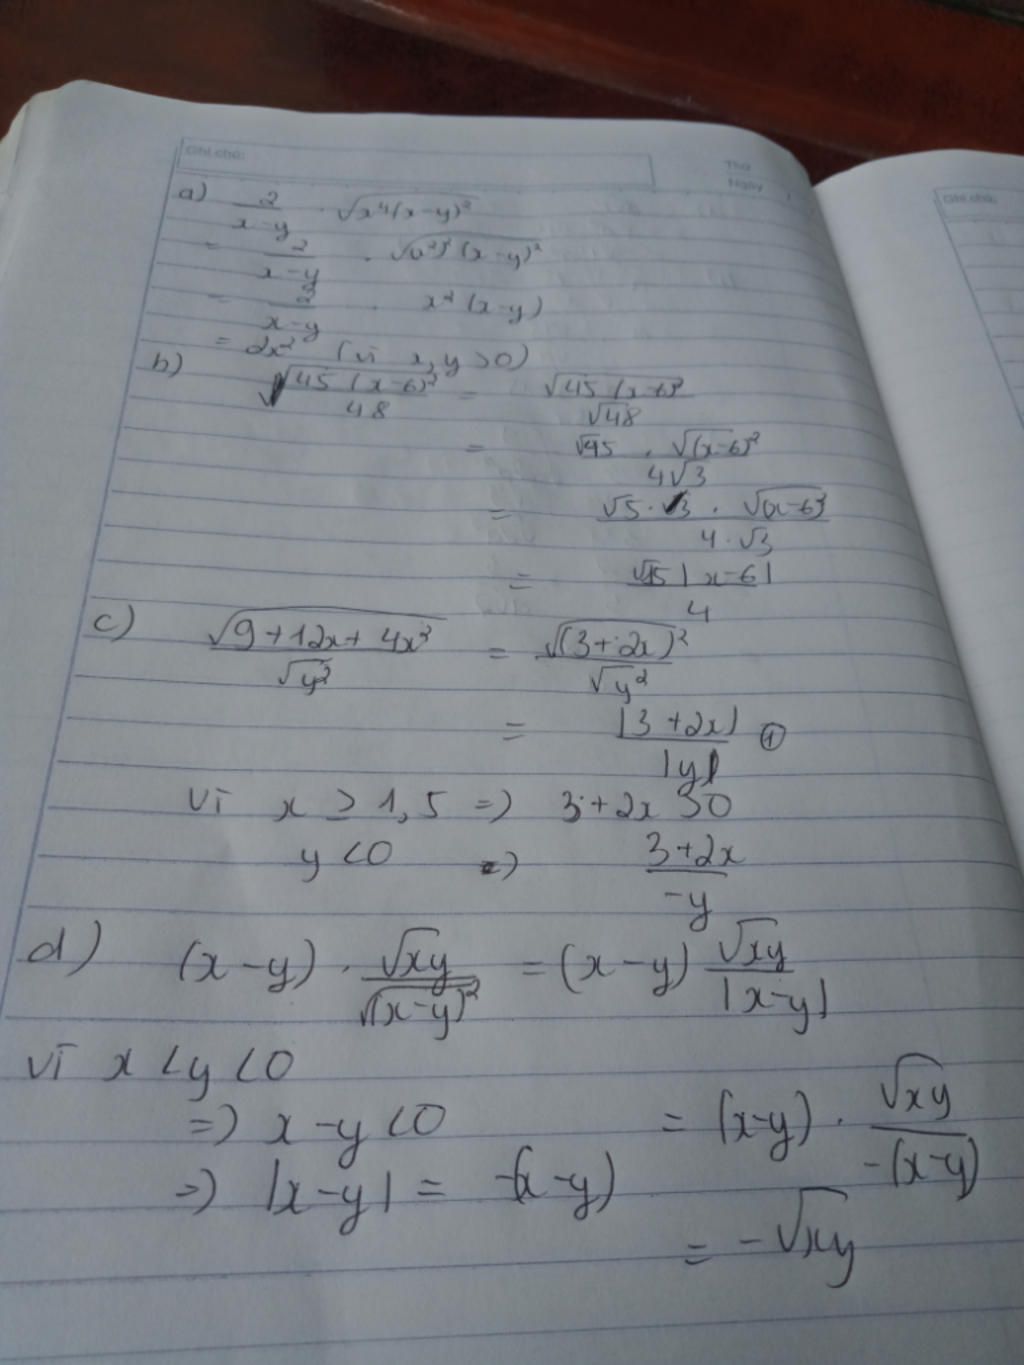 Ghi chú:
Thứ
Ngày
Ghi chú:
a) 2/(x-y) . √(x⁴(x-y)²)
= 2/(x-y) . √((x²)² (x-y)²)
= 2/(x-y) . x² (x-y)
= 2x² (vì x,y >0)
b) √(45 (x-6)²/48) = √(45 (x-6)²)/√48
= √45 . √(x-6)²/4√3
= √5 . √3 . √(x-6)²/4 . √3
= √15 |x-6|/4
c) √(9+12x+4x²)/√y² = √(3+2x)²/√y²
= |3+2x|/|y| ①
Vì x ≥ 1,5 => 3+2x >0
y <0 => (3+2x)/-y
d) (x-y) . √xy/√(x-y)² = (x-y) √xy/|x-y|
vì x <y <0
=> x-y <0 = (x-y) . √xy/-(x-y)
=> |x-y| = -(x-y)
= -√xy